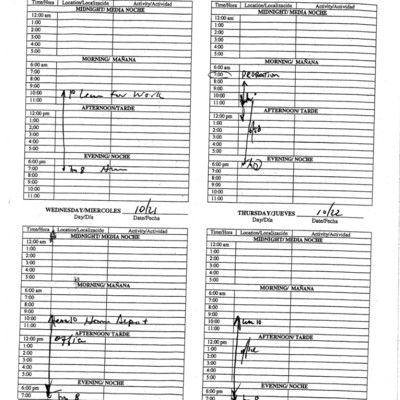 Time/Hora Location/Localización Activity/Actividad
MIDNIGHT/ MEDIA NOCHE
12:00 am
1:00
2:00
3:00
4:00
5:00
MORNING/ MAÑANA
6:00 am
7:00
8:00
9:00
10:00 Leave For Work
11:00
AFTERNOON/TARDE
12:00 pm
1:00
2:00
3:00
4:00
5:00
EVENING/ NOCHE
6:00 pm
7:00
8:00
9:00
10:00
11:00
Time/Hora Location/Localización Activity/Actividad
MIDNIGHT/ MEDIA NOCHE
12:00 am
1:00
2:00
3:00
4:00
5:00
MORNING/ MAÑANA
6:00 am
7:00 PROBATION
8:00
9:00
10:00
11:00
AFTERNOON/TARDE
12:00 pm
1:00
2:00
3:00
4:00
5:00
EVENING/ NOCHE
6:00 pm
7:00
8:00
9:00
10:00
11:00
WEDNESDAY/MIERCOLES 10/21
Day/Día Date/Fecha
Time/Hora Location/Localización Activity/Actividad
MIDNIGHT/ MEDIA NOCHE
12:00 am
1:00
2:00
3:00
4:00
5:00
MORNING/ MAÑANA
6:00 am
7:00
8:00
9:00
10:00 Home Depot
11:00
AFTERNOON/TARDE
12:00 pm office
1:00
2:00
3:00
4:00
5:00
EVENING/ NOCHE
6:00 pm
7:00
8:00
THURSDAY/JUEVES 10/22
Day/Día Date/Fecha
Time/Hora Location/Localización Activity/Actividad
MIDNIGHT/ MEDIA NOCHE
12:00 am
1:00
2:00
3:00
4:00
5:00
MORNING/ MAÑANA
6:00 am
7:00
8:00
9:00
10:00
11:00
AFTERNOON/ TARDE
12:00 pm
1:00
2:00
3:00
4:00
5:00
EVENING/ NOCHE
6:00 pm
7:00
8:00